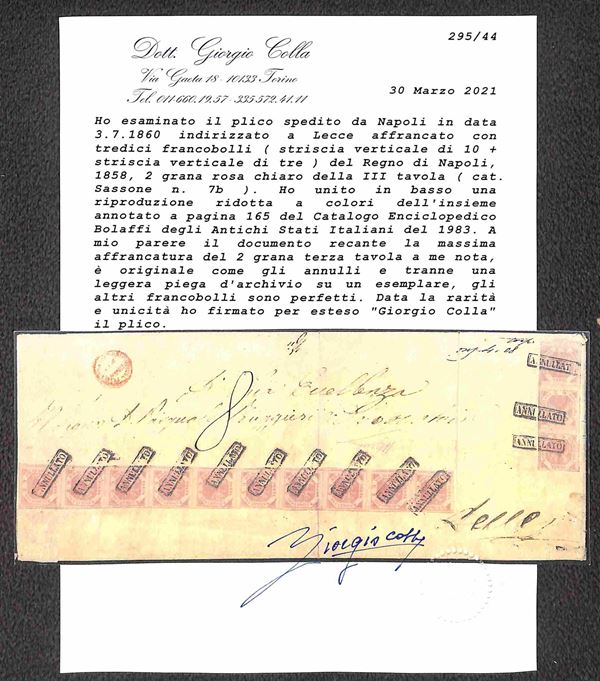 295/44
Dott. Giorgio Colla
Via Gaeta 18 - 10133 Torino
Tel. 011·660.19.57 - 335·572.41.11
30 Marzo 2021
Ho esaminato il plico spedito da Napoli in data
3.7.1860 indirizzato a Lecce affrancato con
tredici francobolli ( striscia verticale di 10 +
striscia verticale di tre ) del Regno di Napoli,
1858, 2 grana rosa chiaro della III tavola ( cat.
Sassone n. 7b ). Ho unito in basso una
riproduzione ridotta a colori dell'insieme
annotato a pagina 165 del Catalogo Enciclopedico
Bolaffi degli Antichi Stati Italiani del 1983. A
mio parere il documento recante la massima
affrancatura del 2 grana terza tavola a me nota,
è originale come gli annulli e tranne una
leggera piega d'archivio su un esemplare, gli
altri francobolli sono perfetti. Data la rarità
e unicità ho firmato per esteso "Giorgio Colla"
il plico.
ANNULLATO
ANNULLATO
ANNULLATO
8
ANNULLATO ANNULLATO ANNULLATO ANNULLATO ANNULLATO ANNULLATO ANNULLATO ANNULLATO ANNULLATO ANNULLATO
Lecce
Giorgio Colla